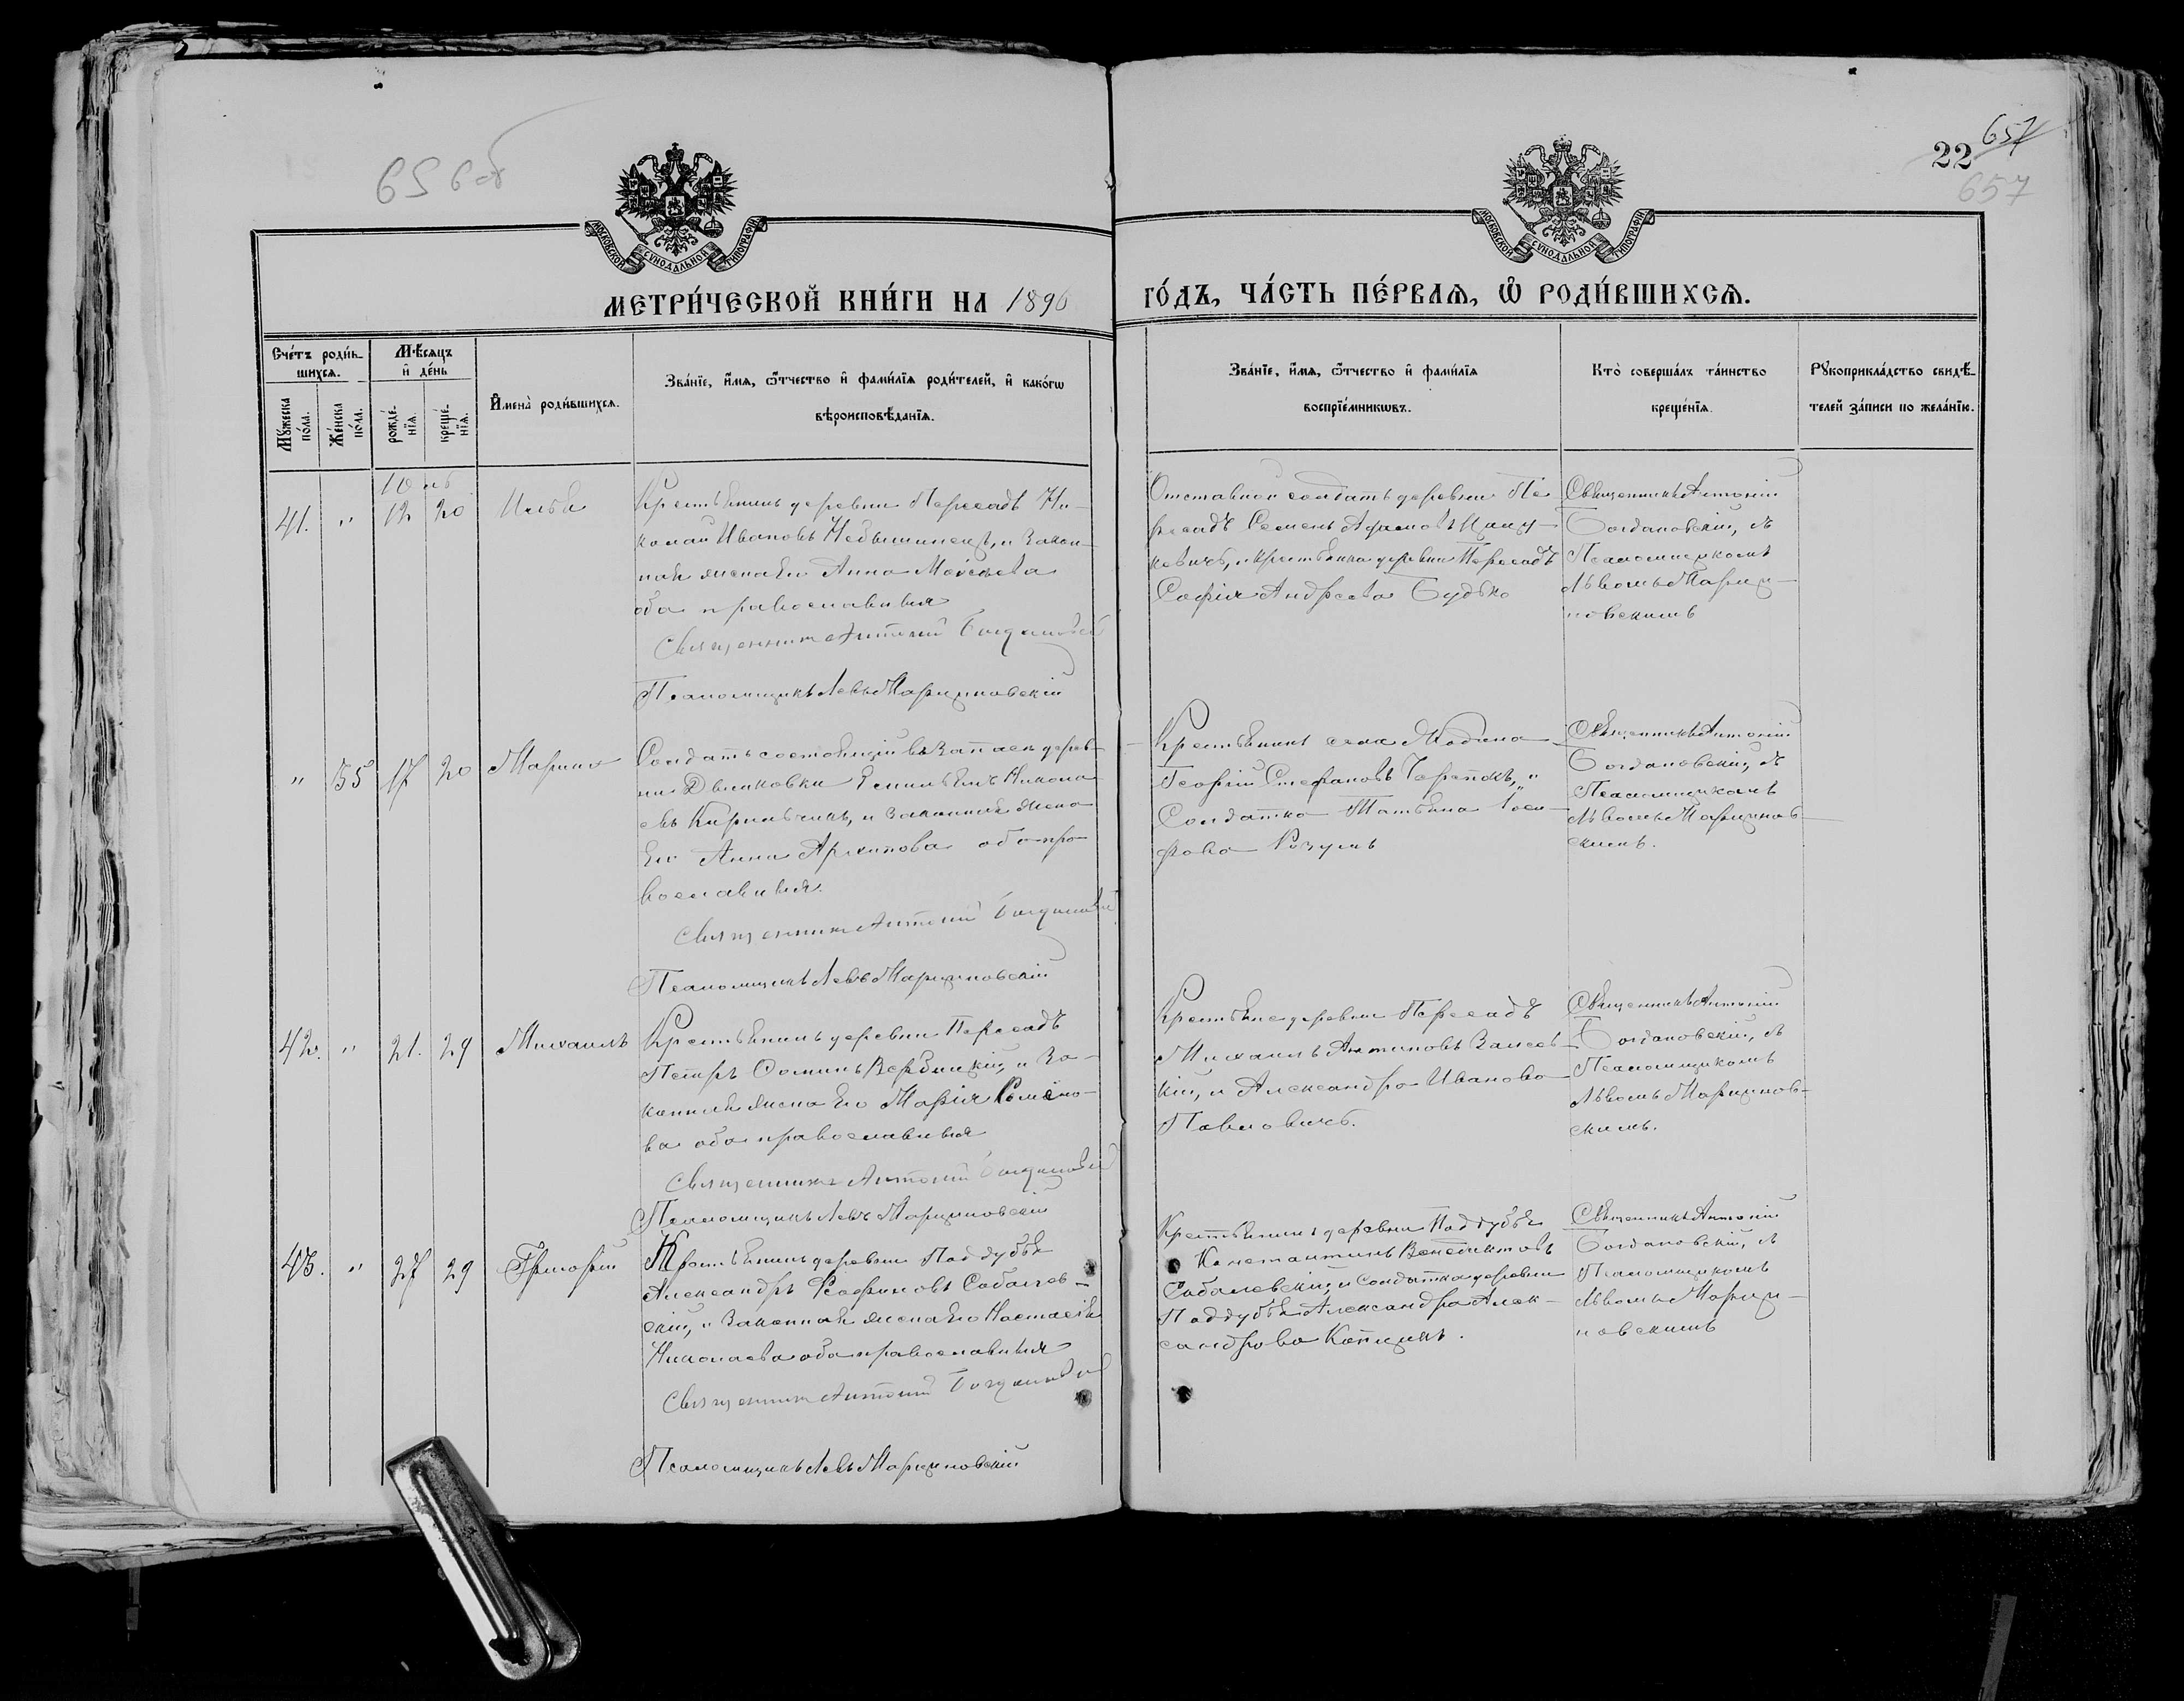 656 об
22
657
657
МОСКОВСКОЙ СѴНОДАЛЬНОЙ ТИПОГРАФІИ
МОСКОВСКОЙ СѴНОДАЛЬНОЙ ТИПОГРАФІИ
МЕТРИ́ЧЕСКОЙ КНИ́ГИ НА 1896
ГО́ДЪ, ЧА́СТЬ ПЕ́РВАѦ, Ѡ҆ РОДИ́ВШИХСѦ.
Сче́тъ роди́в-
шихсѧ.
Мꙋ́жеска по́ла.
Же́нска по́ла.
Мѣ́сѧцъ
и҆ де́нь
рожде́-
нїѧ.
креще́-
нїѧ.
И҆мена̀ роди́вшихсѧ.
Зва́нїе, и҆́мѧ, ѻ҆́тчество и҆ фами́лїѧ роди́телей, и҆ како́гѡ
вѣроисповѣ́данїѧ.
Зва́нїе, и҆́мѧ, ѻ҆́тчество и҆ фами́лїѧ
воспрїе́мникѡвъ.
Кто̀ соверша́лъ та́инство
креще́нїѧ.
Рꙋкоприкла́дство свидѣ́-
телей за́писи по жела́нїю.
Іюль
41. " 12 20 Илья
Крестьянинъ деревни Пересадъ Ни-
колай Ивановъ и закон-
ная жена его Анна Моисеева
оба православныя
Священникъ Антоній Богдановскій
Псаломщикъ Левъ Марциновскій
Отставной солдатъ деревни Пе
ресадъ Семенъ
кевичъ, и крестьянка деревни Пересадъ
Софія Андреева Будько
Священникъ Антоній
Богдановскій, съ
Псаломщикомъ
Львомъ Марци-
новскимъ
" 55 17 20 Марина
Солдатъ состоящій въ запасѣ дерев-
ни Двиновки Емильянъ Никола
евъ Кирильчикъ, и законная жена
его Анна Архипова оба пра
вославныя.
Священникъ Антоній Богдановскій
Псаломщикъ Левъ Марциновскій
Крестьянинъ села
Георгій Стефановъ и
Солдатка Татьяна Іоси-
фова Розумъ
Священникъ Антоній
Богдановскій, съ
Псаломщикомъ
Львомъ Марцинов-
скимъ.
42. " 21. 29 Михаилъ
Крестьянинъ деревни Пересадъ
Петръ Соминъ Вербицкій, и за-
конная жена его Марія Семено-
ва оба православныя
Священникъ Антоній Богдановскій
Псаломщикъ Левъ Марциновскій
Крестьяне деревни Пересадъ
Михаилъ Антиповъ
кій, и Александра Иванова
Павловичъ.
Священникъ Антоній
Богдановскій, съ
Псаломщикомъ
Львомъ Марцинов-
скимъ.
43. " 27 29 Григорій
Крестьянинъ деревни Поддубья
Александръ Соболев-
скій, и законная жена его Настасія
Николаева оба православныя
Священникъ Антоній Богдановскій
Псаломщикъ Левъ Марциновскій
Крестьянинъ деревни Поддубья
Константинъ Венедиктовъ
Соболевскій, и солдатка деревни
Поддубья Александра Алек-
сандрова
Священникъ Антоній
Богдановскій, съ
Псаломщикомъ
Львомъ Марци-
новскимъ